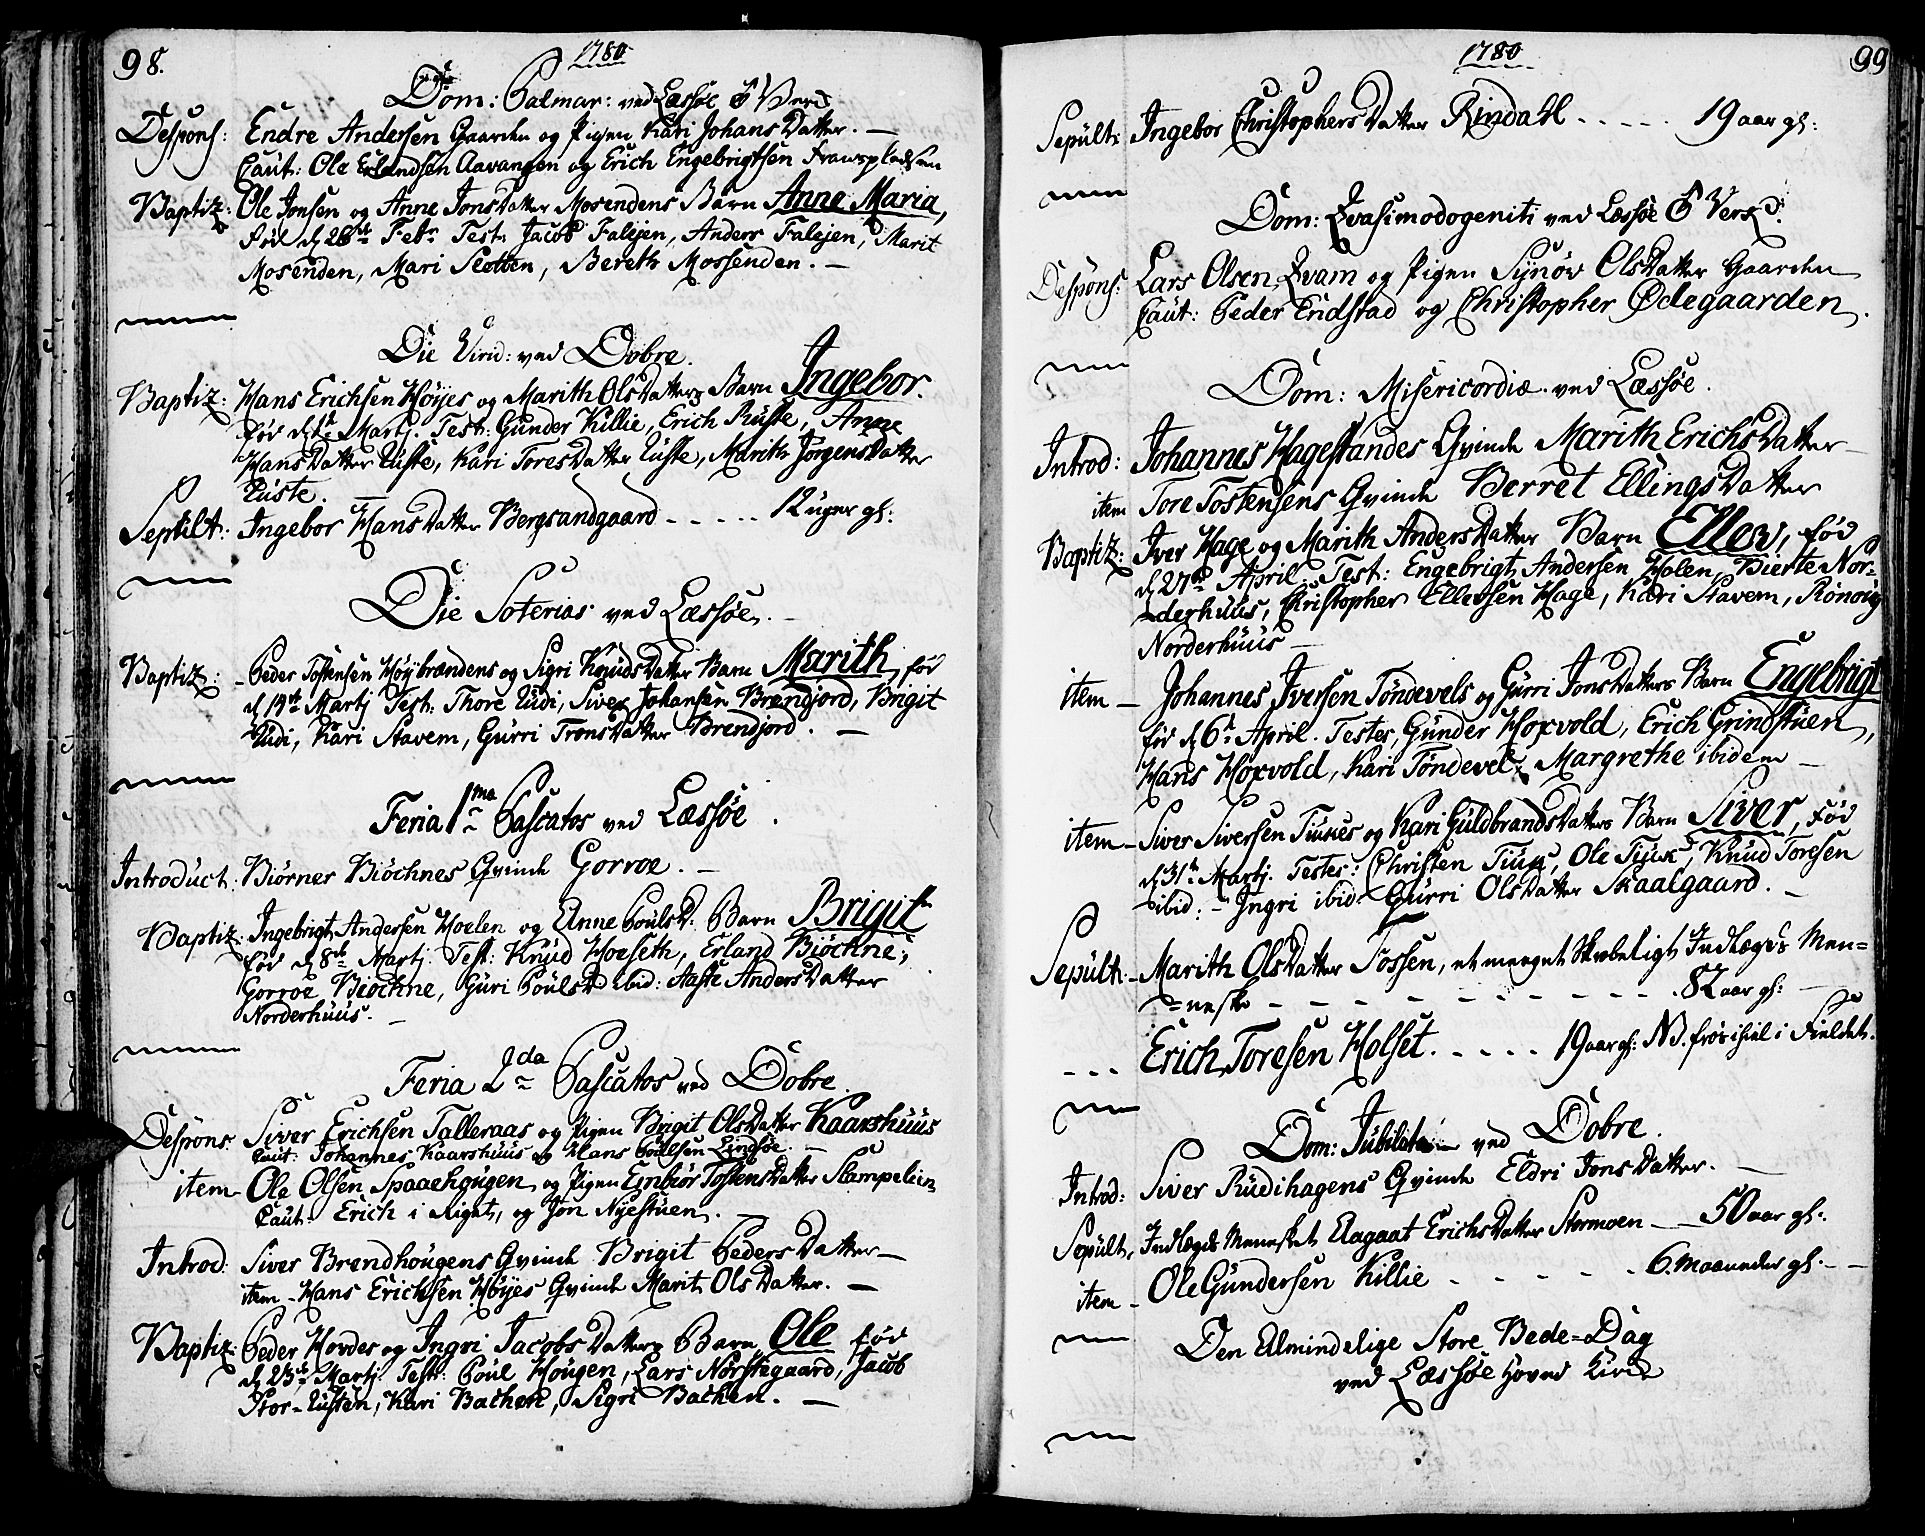 98.
1780
Dom: Palmar: ved Læssøe
Despons: Endre Andersen Gaarden og Pigen Kari JohansDatter. —
Caut: Ole Erlandsen Aavangen og Erich Engebrigtsen
Baptiz: Ole Jonsen og Anne JonsDatter Mosendens Barn Anne Maria,
Fød d 26de Febr Test: Jacob Falejen, Anders Falejen, Marit
Mosenden, Mari Slotten, Bereth Mossenden. —
Die Virid: ved Dobre.
Baptiz: Hans Erichsen Høÿes og Marith OlsDatters Barn Ingebor.
Fød d Martj. Test: Gunder Killie, Erich Ruste, Anne
HansDatter Luste, Kari ToresDatter Luste, Marith JørgensDatter
Luste.
Sepult: Ingebor HansDatter Bergsandgaard - - - - - 12 uger gl:
Die Soterias ved Læssøe. -
Baptiz: - Peder Tostensen Høÿbrændens og Sigri KnudsDatter Barn Marith, fød
d 19de Martj Test: Thore Ludi, Siver Johansen Brendjord, Brigit
Ludi, Kari Stavem, Gurri TronsDatter Brendjord. —
Feria 1ma Pascatos ved Læssøe.
Introduct: Biørner Biøchnes Qvinde Gorroe. —
Baptiz: Ingebrigt Andersen Hoelen og Anne PoulsD: Barn Brigit
fød d 8de Martj. Test: Knud Hoeseth, Erland Biøchne,
Gorroe Biøchne, Guri PoulsD ibid: Aaste AndersDatter
Norderhuus. —
Feria 2da Pascatos ved Dobre.
Despons: Siver Erichsen Talleraas og Pigen Brigit OlsDatter Kaarshuus
Caut: Johannes Kaarshuus og Hans Poulsen Lindsøe. —
item - Ole Olsen Spaaehougen og Pigen Embiør TostensDatter
Caut: Erich i Riget, og Jon Nyestuen. —
Introd: Siver Brendhougens Qvinde Brigit PedersDatter —
item - Hans Erichsen Høÿes Qvinde Marit OlsDatter. —
Baptiz: Peder Hovdes og Ingri JacobsDatters Barn Ole fød
d 23de Martj Test: Poul Hougen, Lars Norstegaard, Jacob
Stor-Lusten, Kari Bachen, Sigri Bachen. —
1780
99
Sepult: Ingebor ChristophersDatter Rindahl - - - - - 19 aar gl:
Dom: Qvasimodogeniti ved Læssøe
Despons: Lars Olsen Qvam og Pigen Synøv OlsDatter Gaarden
Caut: Peder Endstad og Christopher Ødegaarden.
Dom: Misericordiæ ved Læssøe.
Introd: Johannes Hagestandes Qvinde Marith ErichsDatter —
item Tore Tostensens Qvinde Berret EllingsDatter
Baptiz: Iver Hage og Marith AndersDatter Barn Ellev, fød
d 27de April. Test: Engebrigt Andersen Holen, Bierte Nor-
derhuus, Christopher Ellevsen Hage, Kari Stavem, Rønøvig
Norderhuus —
item — Johannes Iversen Tøndevels og Gurri JonsDatters Barn Engebrigt
fød d 6te April. Testes, Gunder Hoxvold, Erich Grindstuen,
Hans Hoxvold, Kari Tøndevel, Margrethe ibidem —
item - Siver Siversen Tiuxes og Kari GuldbrandsDatters Barn Siver, fød
d 31te Martj. Testes: Christen Tiux, Ole Tiux, Knud Toresen
ibid: - Ingri ibid Gurri OlsDatter Skaalgaard. —
Sepult: - Marith OlsDatter Tossen, et meeget Skrøbeligt Indlægds Men-
neske - - - - - - - - - - - - 82 aar gl: —
- - - Erich Toresen Holset. - - - - - 19 aar gl: NB. frøs ihiel i Fieldet.
Dom: Jubilate ved Dobre.
Introd: Siver Rudihagens Qvinde Eldri JonsDatter. —
Sepult, Indlægds Menesket Aagaat ErichsDatter Stormoen — 50 aar gl:.
item - Ole Gundersen Killie - - - - - - - 6. maaneder gl: - —
Den Almindelige Store Bede-Dag
ved Læssøe Hoved Kirke